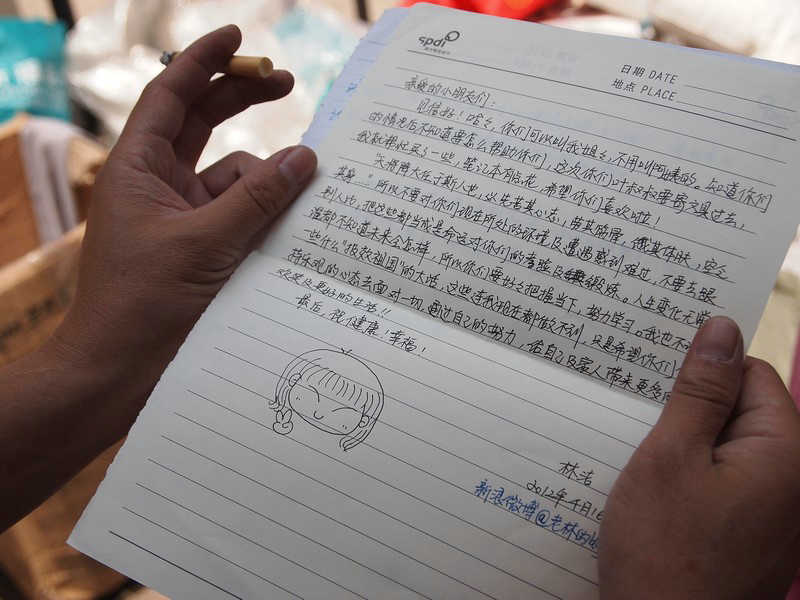 spdi
日期 DATE
地点 PLACE
亲爱的小朋友们：
见信好！哈哈，你们可以叫我姐姐，不用叫阿姨的。知道你们
的情况后不知道要怎么帮助你们，这次你们叶叔叔要寄文具过去，
我就帮忙买了一些，笔记本有点花，希望你们喜欢啦！
"天将降大任于斯人也，必先苦其心志，劳其筋骨，饿其体肤，空乏
其身"，所以不要对你们现在所处的环境及遭遇感到难过，不要去跟
别人比，把这些都当成是命运对你们的考验及锻炼。人生变化无常
谁都不知道未来会怎样，所以你们要好好把握当下，努力学习。我也不
一些什么"报效祖国"的大话，这些连我现在都做不到，只是希望你们
持乐观的心态去面对一切，通过自己的努力，给自己及家人带来更多
欢笑及更好的生活！！
最后，祝健康！幸福！
林洁
2012年4月16
新浪微博@老林的